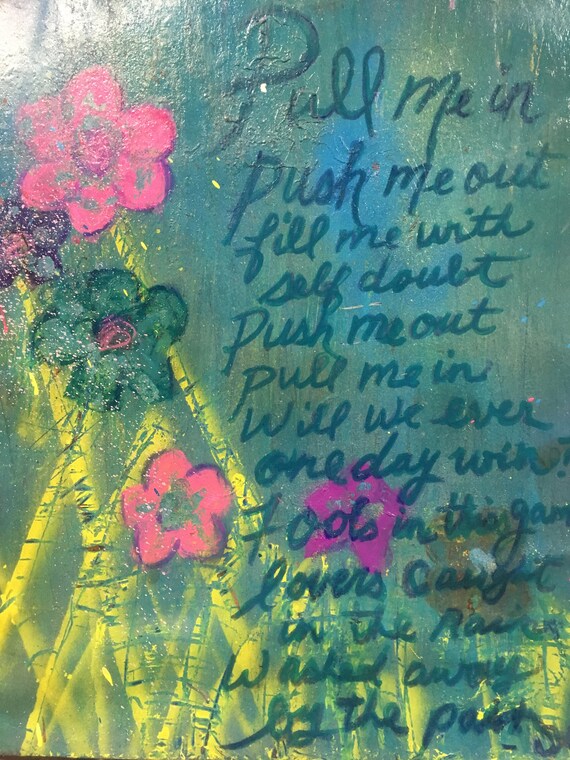 Pull me in
push me out
fill me with
self doubt
Push me out
pull me in
will we ever
one day win?
Fools in this gam
lovers caught
in the rain
Washed away
by the pain